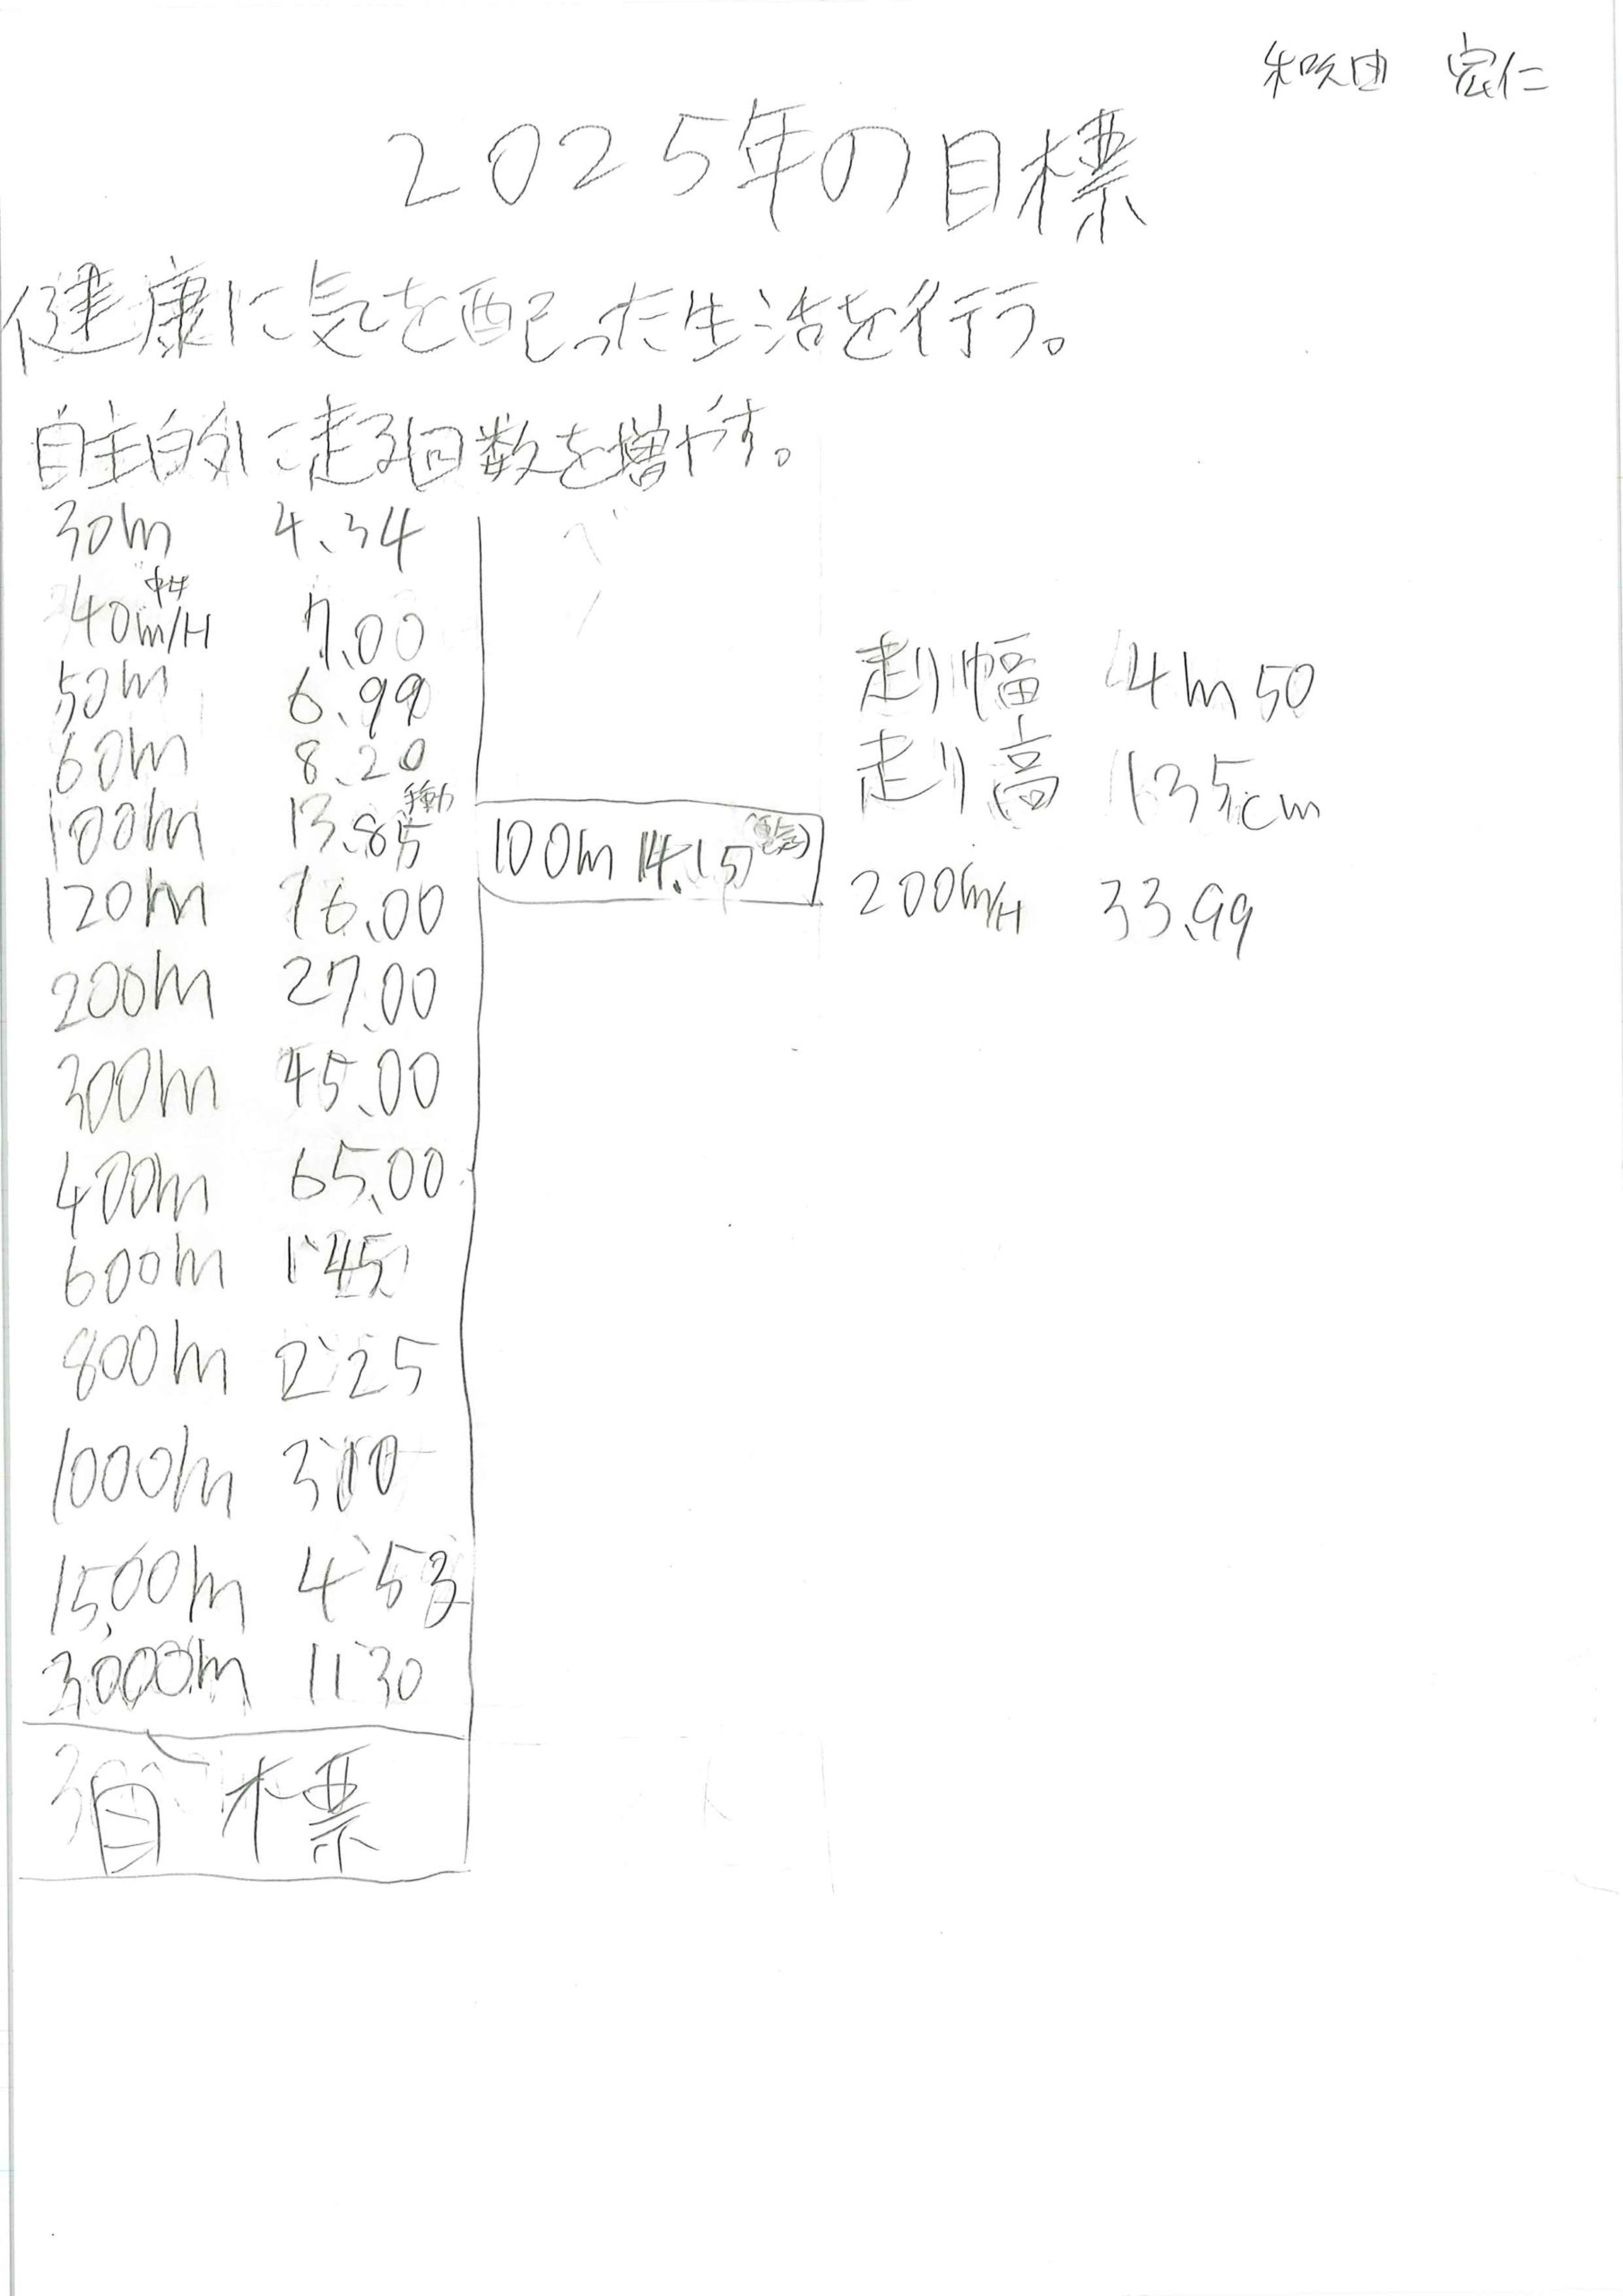 宏仁
2025年の目標
健康に気を配った生活を行う。
自主的に走る回数を増やす。
30m 4.34
40m/H 7.00
50m 6.99
60m 8.20
100m 13.85 手動
100m 14.15 (電気)
120m 16.00
200m 27.00
300m 45.00
400m 65.00
600m 1'45
800m 2'25
1000m 3'10
1500m 4'53
3000m 11'30
目標
走り幅 4m50
走り高 135cm
200m/H 33.99